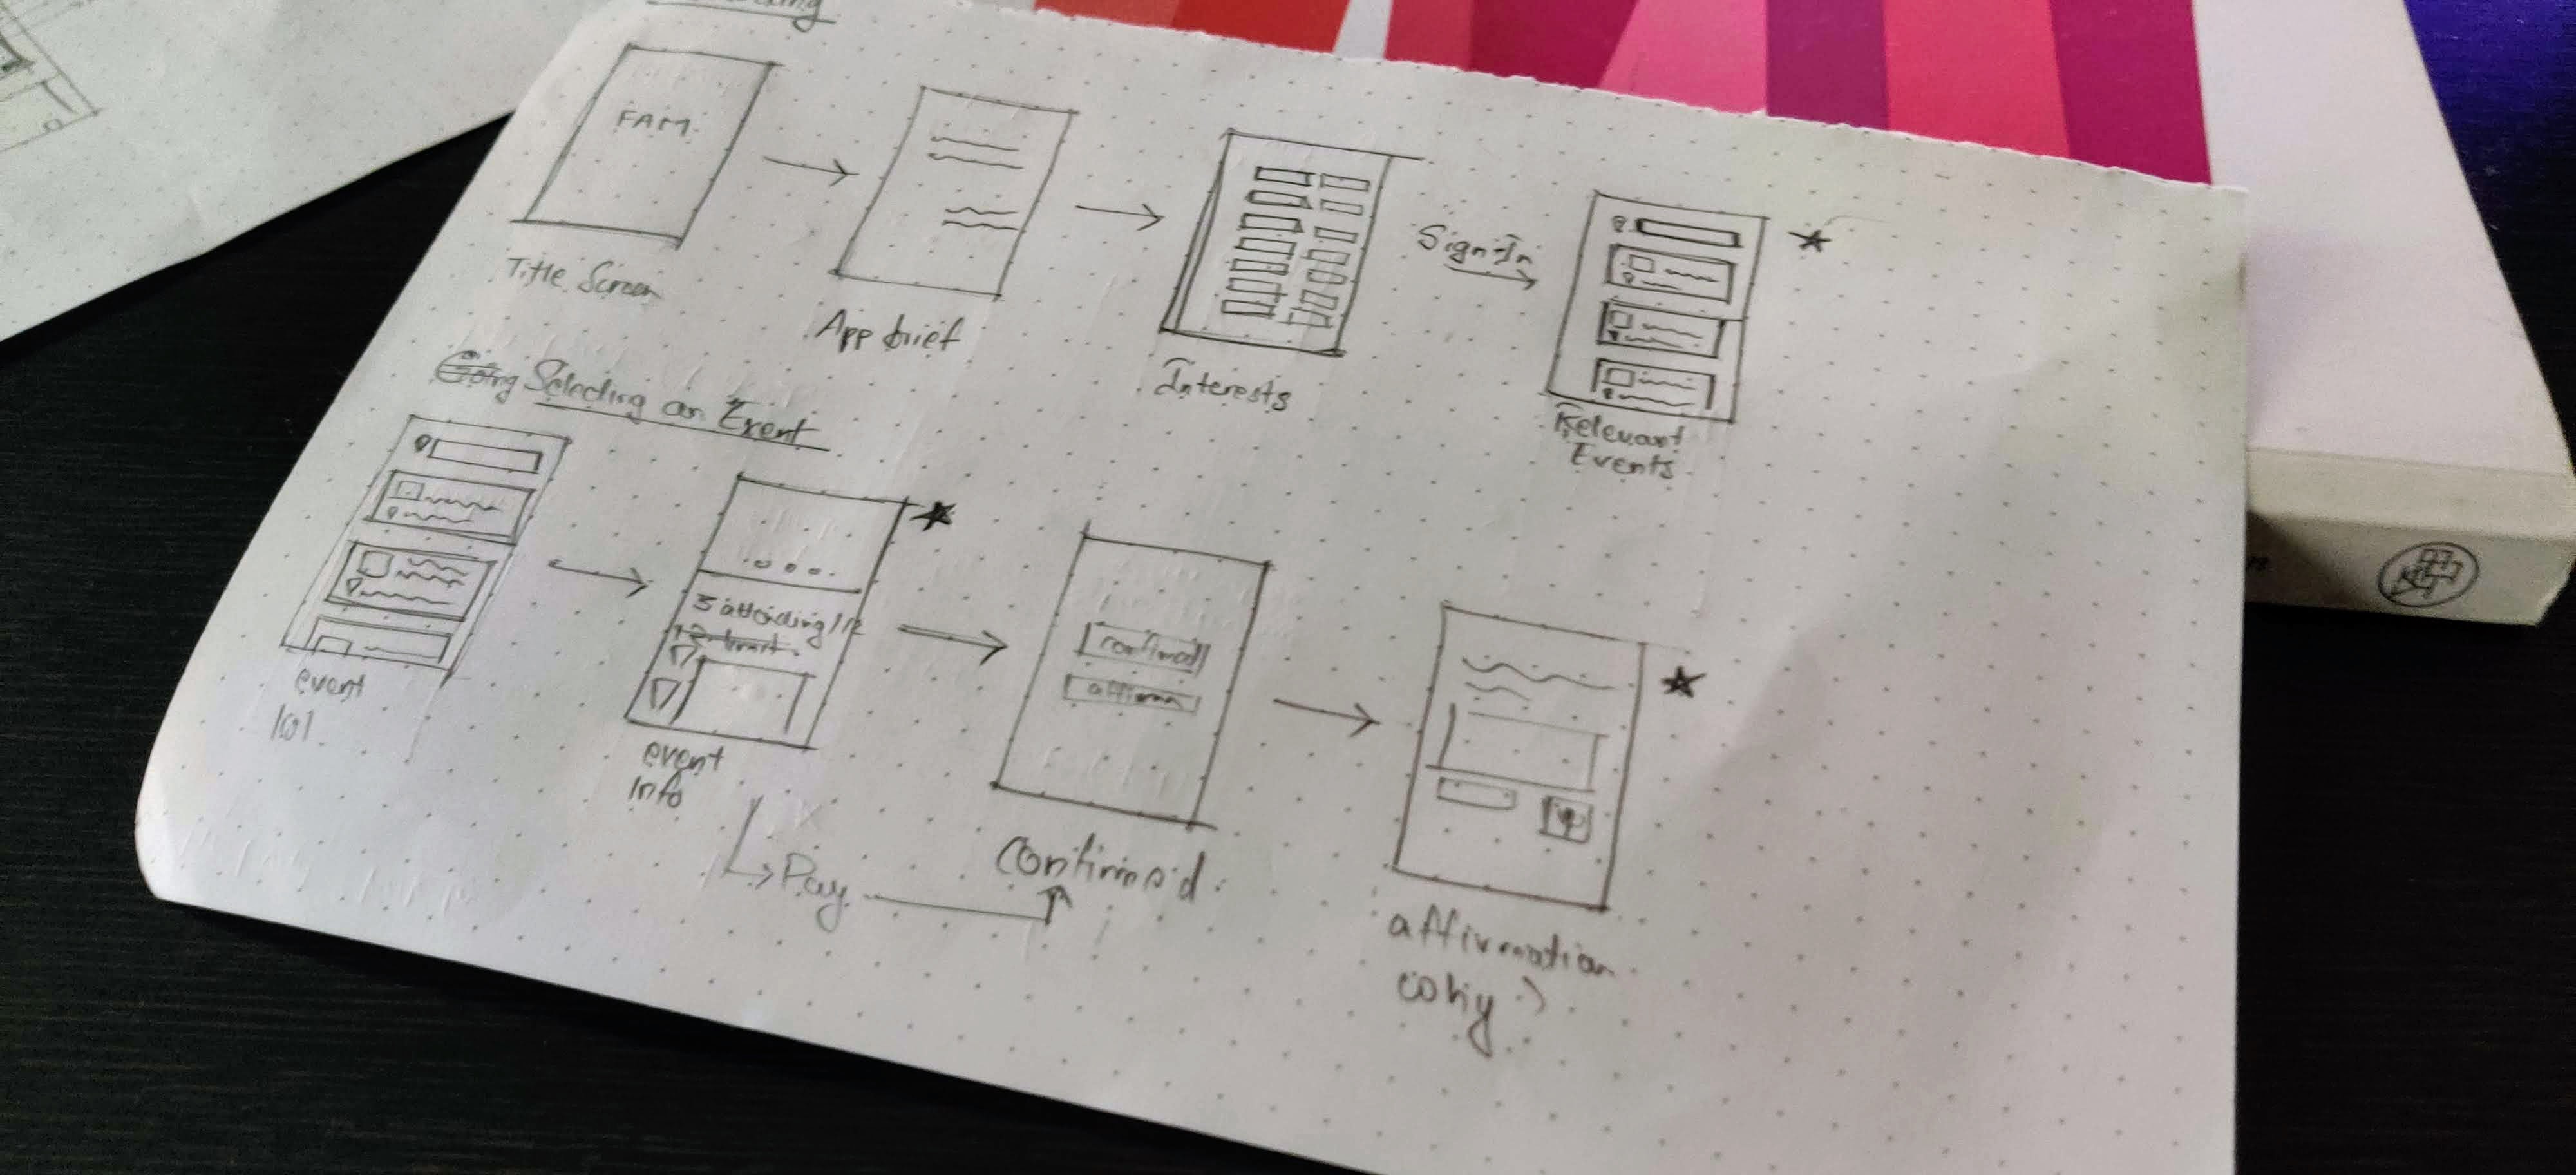 FAM.
Title Screen
App brief
Interests
Sign-In
Relevant
Events
Going Selecting an Event
event
5 attending/12
12 limit.
event
info
Pay
confirmed
affirm
Confirmed.
affirmation